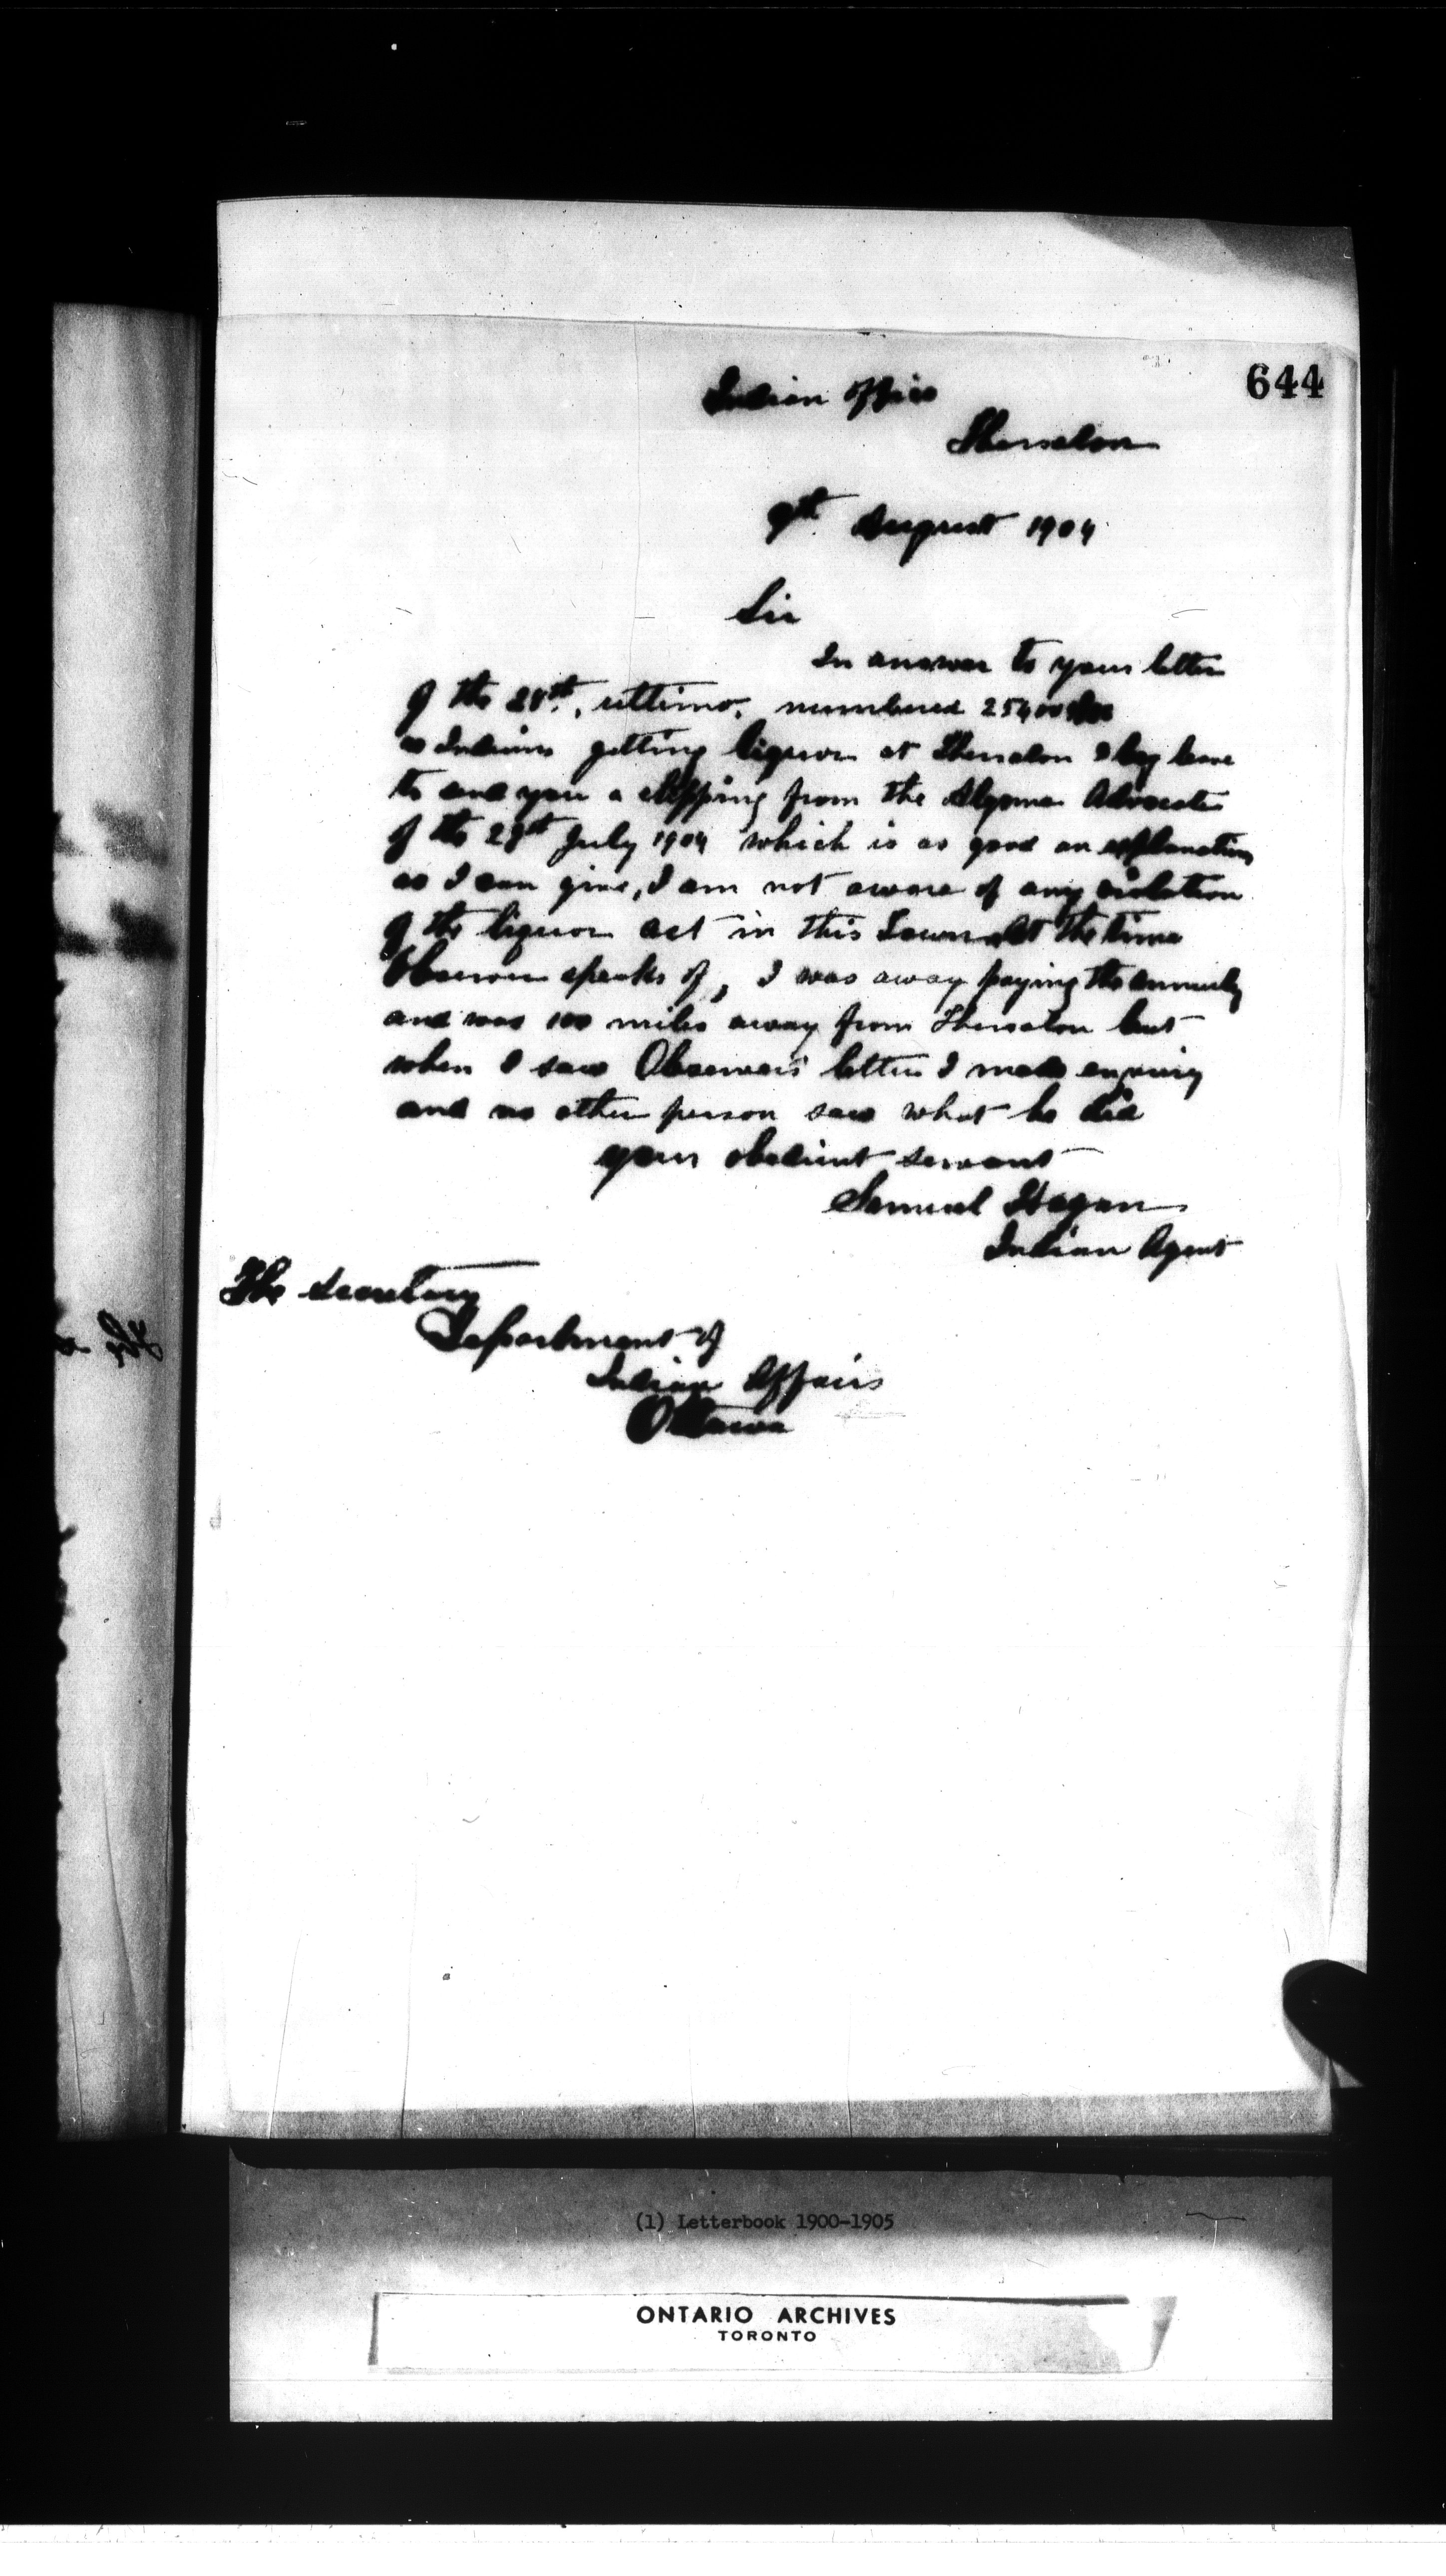 644
Indian Office
Thessalon
9th. August 1904
Sir
In answer to your letter
of the 28th., ultimo, numbered 25400
as Indians getting liquor at Thessalon I beg leave
to send you a clipping from the Algoma Advocate
of the 29th July 1904 which is as good an explanation
as I can give, I am not aware of any violation
of the liquor act in this Town at the time
Observer speaks of, I was away paying the annuity
and was 100 miles away from Thessalon but
when I saw Observers letter I made enquiry
and no other person saw what he did
your obedient servant
Samuel Hagan
Indian Agent
The Secretary
Department of
Indian Affairs
Ottawa
(1) Letterbook 1900-1905
ONTARIO ARCHIVES
TORONTO